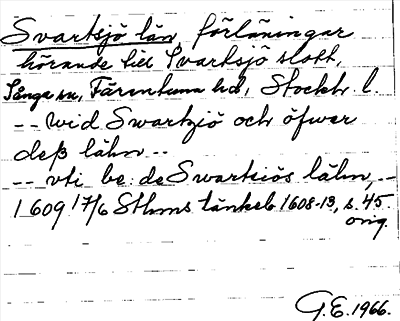 Svartsjö län, förläningar
hörande till Svartsjö slott,
Sånga sn, Färentuna hd, Stockh. l.
-- wid Swartziö och öfwer
deß lähn --
-- vti be: de Swartziös lähn, --
1609 17/6 Sthms tänkeb. 1608-13, s. 45
orig.
G.E. 1966.